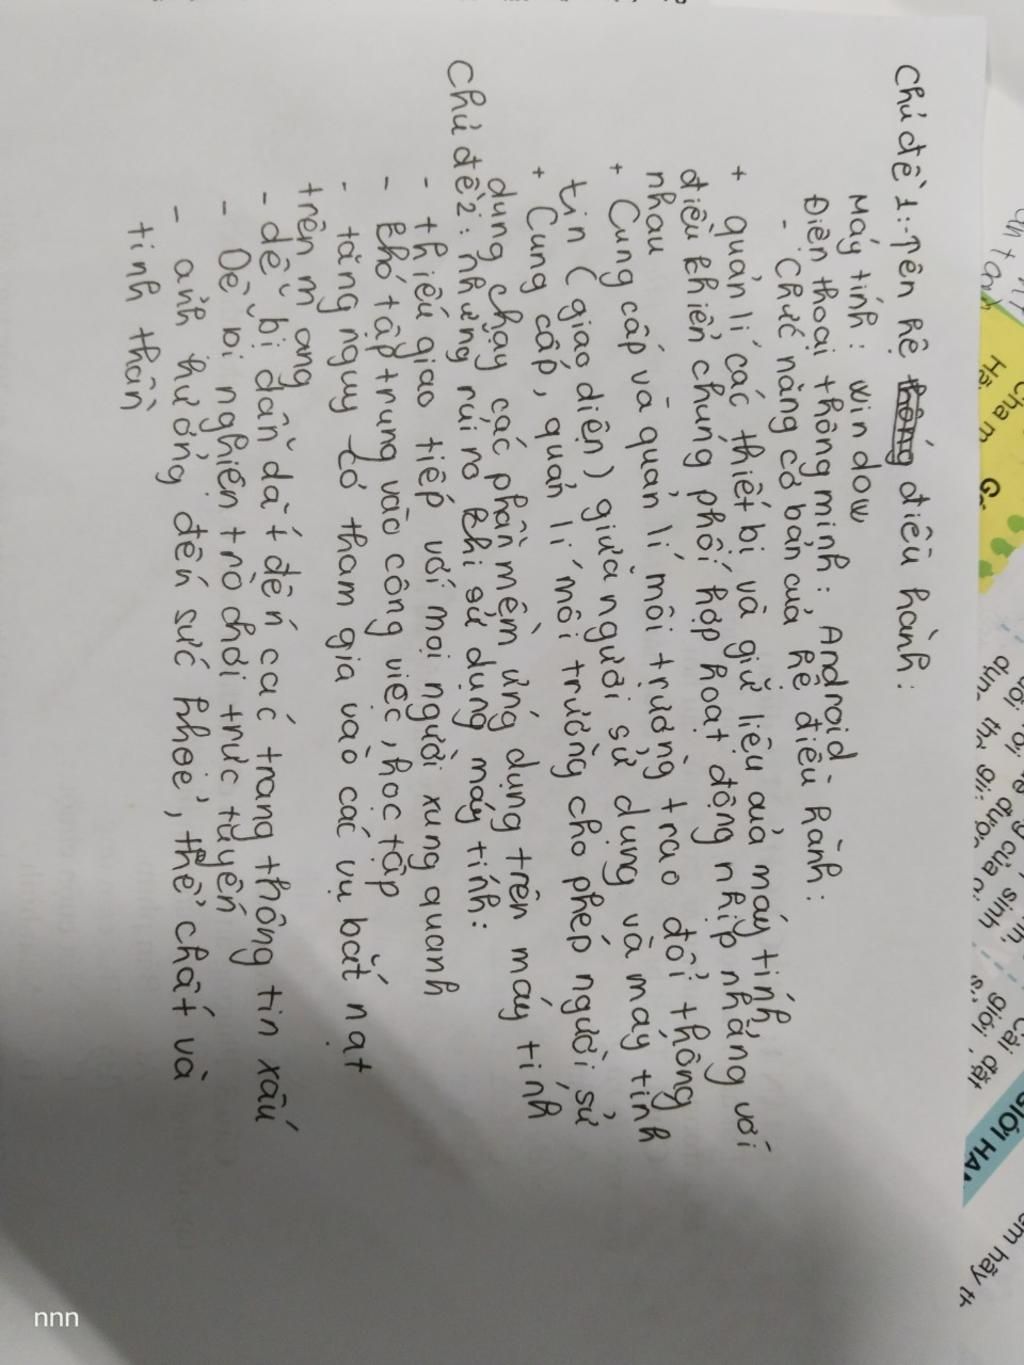 Chủ đề 1: - Tên hệ điều hành:
Máy tính: window
Điện thoại thông minh: Android
- Chức năng cơ bản của hệ điều hành:
+ quản lí các thiết bị và giữ liệu của máy tính,
điều khiển chúng phối hợp hoạt động nhịp nhàng với
nhau
+ Cung cấp và quản lí môi trường trao đổi thông
tin (giao diện) giữa người sử dụng và máy tính
+ Cung cấp, quản lí môi trường cho phép người sử
dụng chạy các phần mềm ứng dụng trên máy tính
Chủ đề 2: những rủi ro khi sử dụng máy tính:
- thiếu giao tiếp với mọi người xung quanh
- khó tập trung vào công việc, học tập
- tăng nguy cơ tham gia vào các vụ bắt nạt
trên mạng
- dễ bị dẫn dắt đến các trang thông tin xấu
- Dễ bị nghiện trò chơi trực tuyến
- ảnh hưởng đến sức khỏe, thể chất và
tinh thần
Cha m
GIỚI HẠ
em hãy
nnn